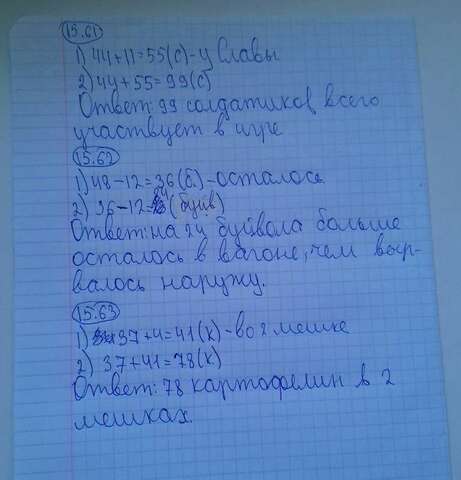 15.61
1) 44+11=55(с)-у Славы
2) 44+55=99(с)
Ответ: 99 солдатиков всего
участвует в игре
15.62
1) 48-12=36(б.)-осталось
2) 36-12=24(буйв)
Ответ: на 24 буйвола больше
осталось в вагоне, чем выр-
валось наружу.
15.63
1) 37+4=41(к)-во 2 мешке
2) 37+41=78(к)
Ответ: 78 картофелин в 2
мешках.